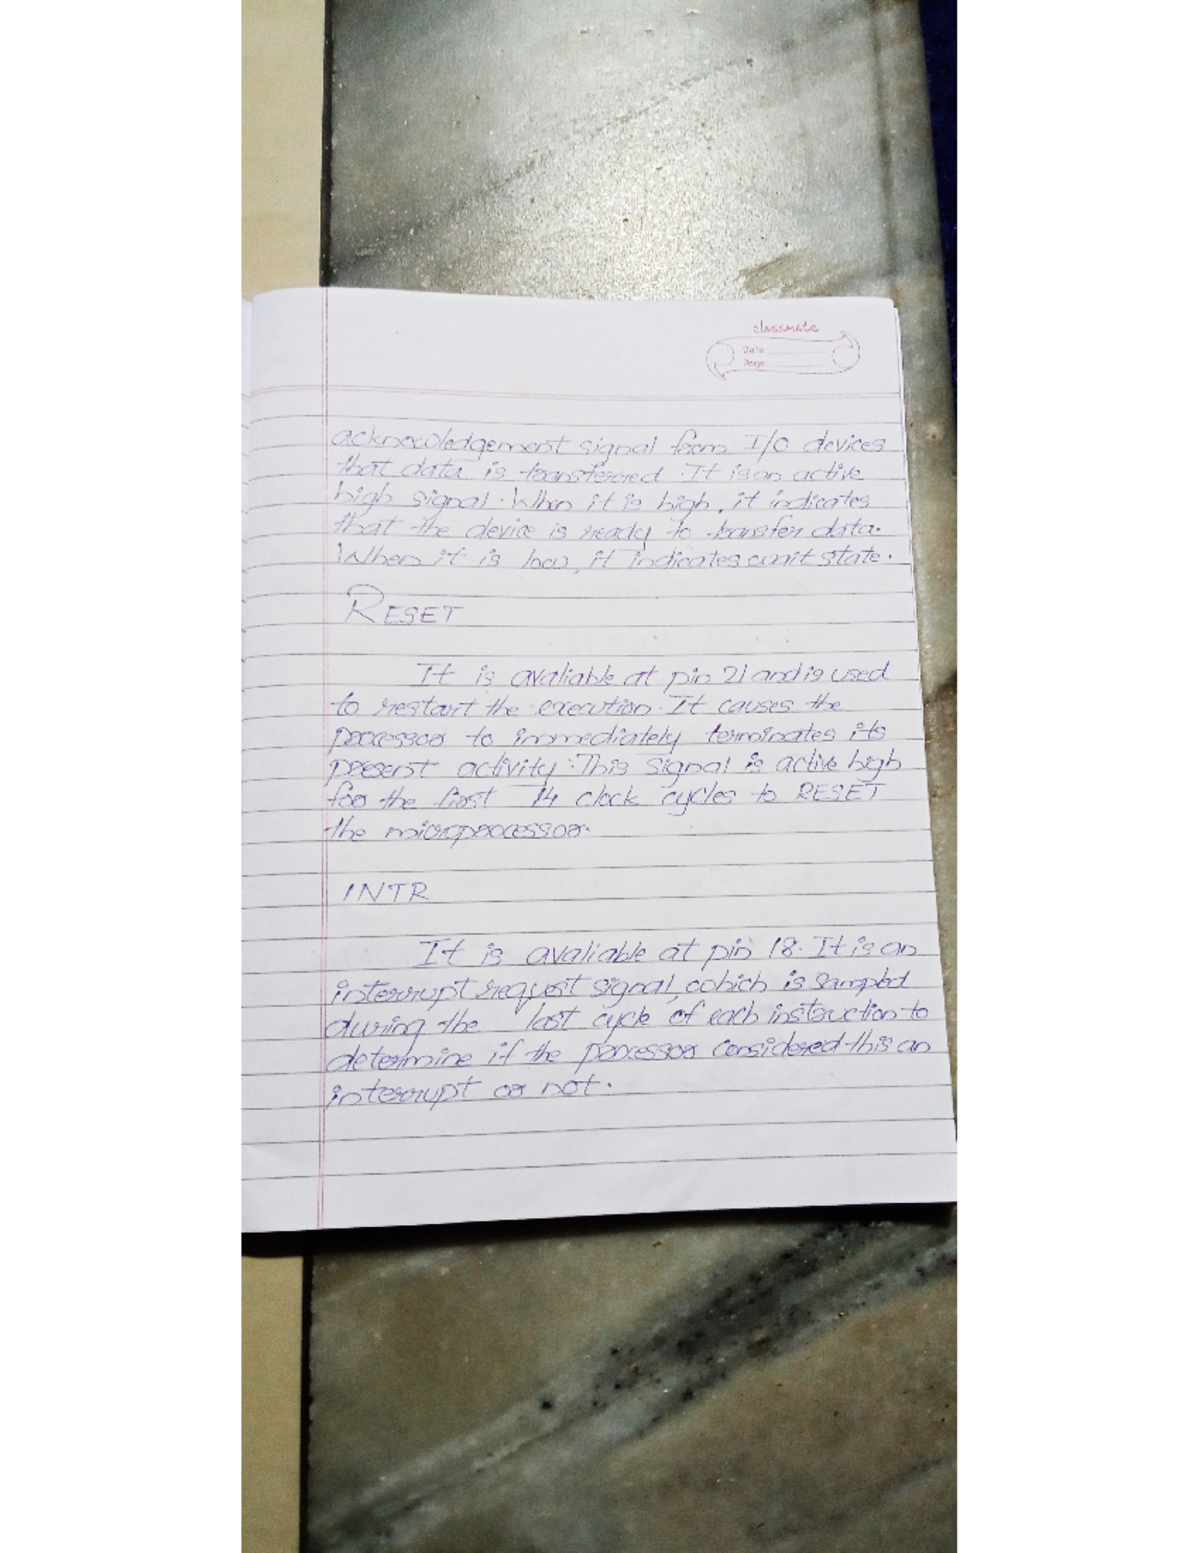 classmate
Date
Page
acknowledgement signal from I/O devices
that data is transferred. It is an active
high signal. When it is high, it indicates
that the device is ready to transfer data.
When it is low, it indicates wait state.
RESET
It is avaliable at pin 21 and is used
to restart the execution. It causes the
processor to immediately terminates its
present activity. This signal is active high
for the first 14 clock cycles to RESET
the microprocessor.
INTR
It is avaliable at pin 18. It is an
interrupt request signal, which is sampled
during the last cycle of each instruction to
determine if the processor considered this an
interrupt or not.